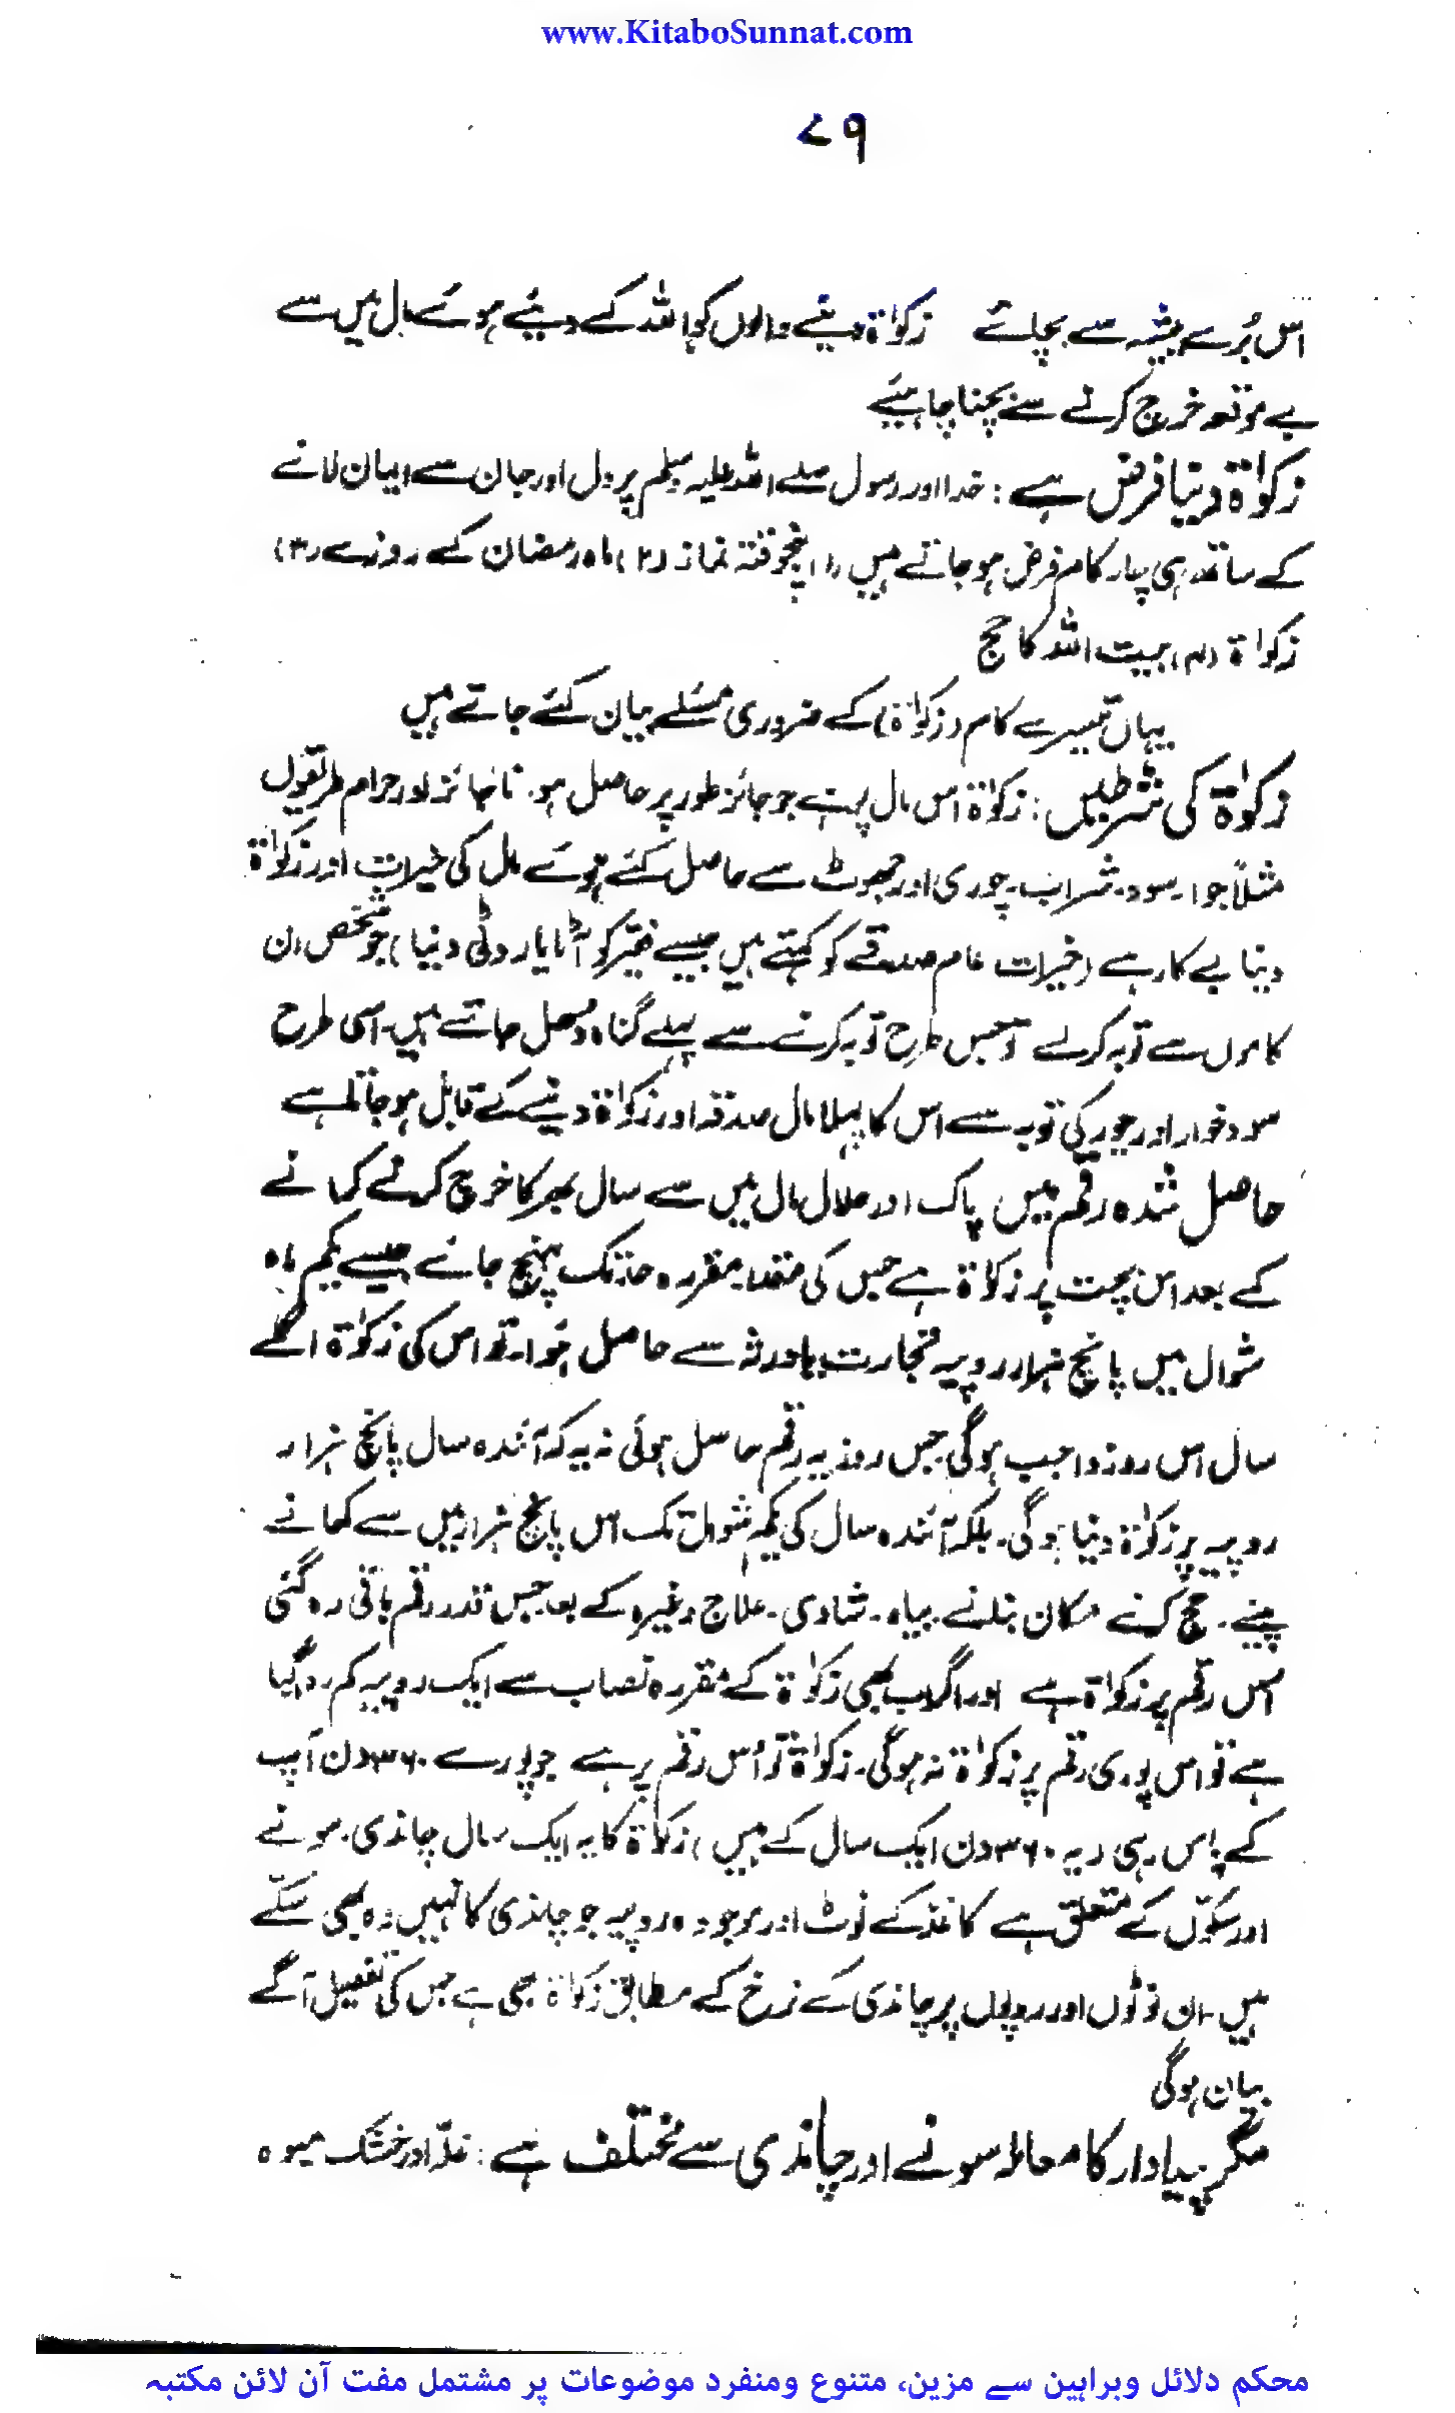 www.KitaboSunnat.com
۷۹
اس بُرے پیشہ سے بچائے زکوٰۃ دینے والوں کو اللہ کے دیئے ہوئے مال میں سے
بے موقعہ خرچ کرنے سے بچنا چاہیئے
زکوٰۃ دینا فرض ہے : خدا اور رسول صلے اللہ علیہ وسلم پر دل اور جان سے ایمان لانے
کے ساتھ ہی چار کام فرض ہو جاتے ہیں (۱) پنجوقتہ نماز (۲) ماہ رمضان کے روزے (۳)
زکواۃ (۴) بیت اللہ کا حج
یہاں تیسرے کام (زکوٰۃ) کے ضروری مسئلے بیان کئے جاتے ہیں
زکوٰۃ کی شرطیں : زکوٰۃ اس مال پر ہے جو جائز طور پر حاصل ہو۔ ناجائز اور حرام طریقوں
مثلاً جوا۔ سود۔ شراب۔ چوری اور جھوٹ سے حاصل کئے ہوئے مال کی خیرات اور زکوٰۃ
دینا بے کار ہے (خیرات عام صدقے کو کہتے ہیں جیسے فقیر کو آٹا یا روٹی دینا) جو شخص ان
کاموں سے توبہ کرلے تو جس طرح توبہ کرنے سے پہلے گناہ دھل جاتے ہیں۔ اسی طرح
سود خوار اور چور کی توبہ سے اس کا پہلا مال صدقہ اور زکوٰۃ دینے کے قابل ہو جاتا ہے
حاصل شدہ رقم میں پاک اور حلال مال میں سے سال بھر کا خرچ کرنے کھانے
کے بعد اس بچت پر زکوٰۃ ہے جس کی مقدار مقررہ حد تک پہنچ جائے جیسے یکم ماہ
شوال میں پانچ ہزار روپیہ تجارت یا ورثہ سے حاصل ہُوا۔ تو اس کی زکوٰۃ اگلے
سال اس روز واجب ہوگی جس روز یہ رقم حاصل ہوئی نہ یہ کہ آئندہ سال پانچ ہزار
روپیہ پر زکوٰۃ دینا ہوگی۔ بلکہ آئندہ سال کی یکم شوال تک اس پانچ ہزار میں سے کھانے
پینے۔ حج کرنے مکان بنانے بیاہ۔ شادی۔ علاج وغیرہ کے بعد جس قدر رقم باقی رہ گئی
اس رقم پر زکوٰۃ ہے اور اگر اب بھی زکوٰۃ کے مقررہ نصاب سے ایک روپیہ کم رہ گیا
ہے تو اس پوری رقم پر زکوٰۃ نہ ہوگی۔ زکوٰۃ تو اُس رقم پر ہے جو پورے ۳۶۰ دن آپ
کے پاس رہی (یہ ۳۶۰ دن ایک سال کے ہیں) زکوٰۃ کا یہ ایک سال چاندی۔ سونے
اور سکوّں کے متعلق ہے کاغذ کے نوٹ اور موجودہ روپیہ جو چاندی کا نہیں وہ بھی سکّے
ہیں۔ ان نوٹوں اور روپوں پر چاندی کے نرخ کے مطابق زکوٰۃ بھی ہے جس کی تفصیل آگے
بیان ہوگی
مگر پیداوار کا معاملہ سونے اور چاندی سے مختلف ہے : غلّہ اور خشک میوہ
محکم دلائل وبراہین سے مزین، متنوع ومنفرد موضوعات پر مشتمل مفت آن لائن مکتبہ